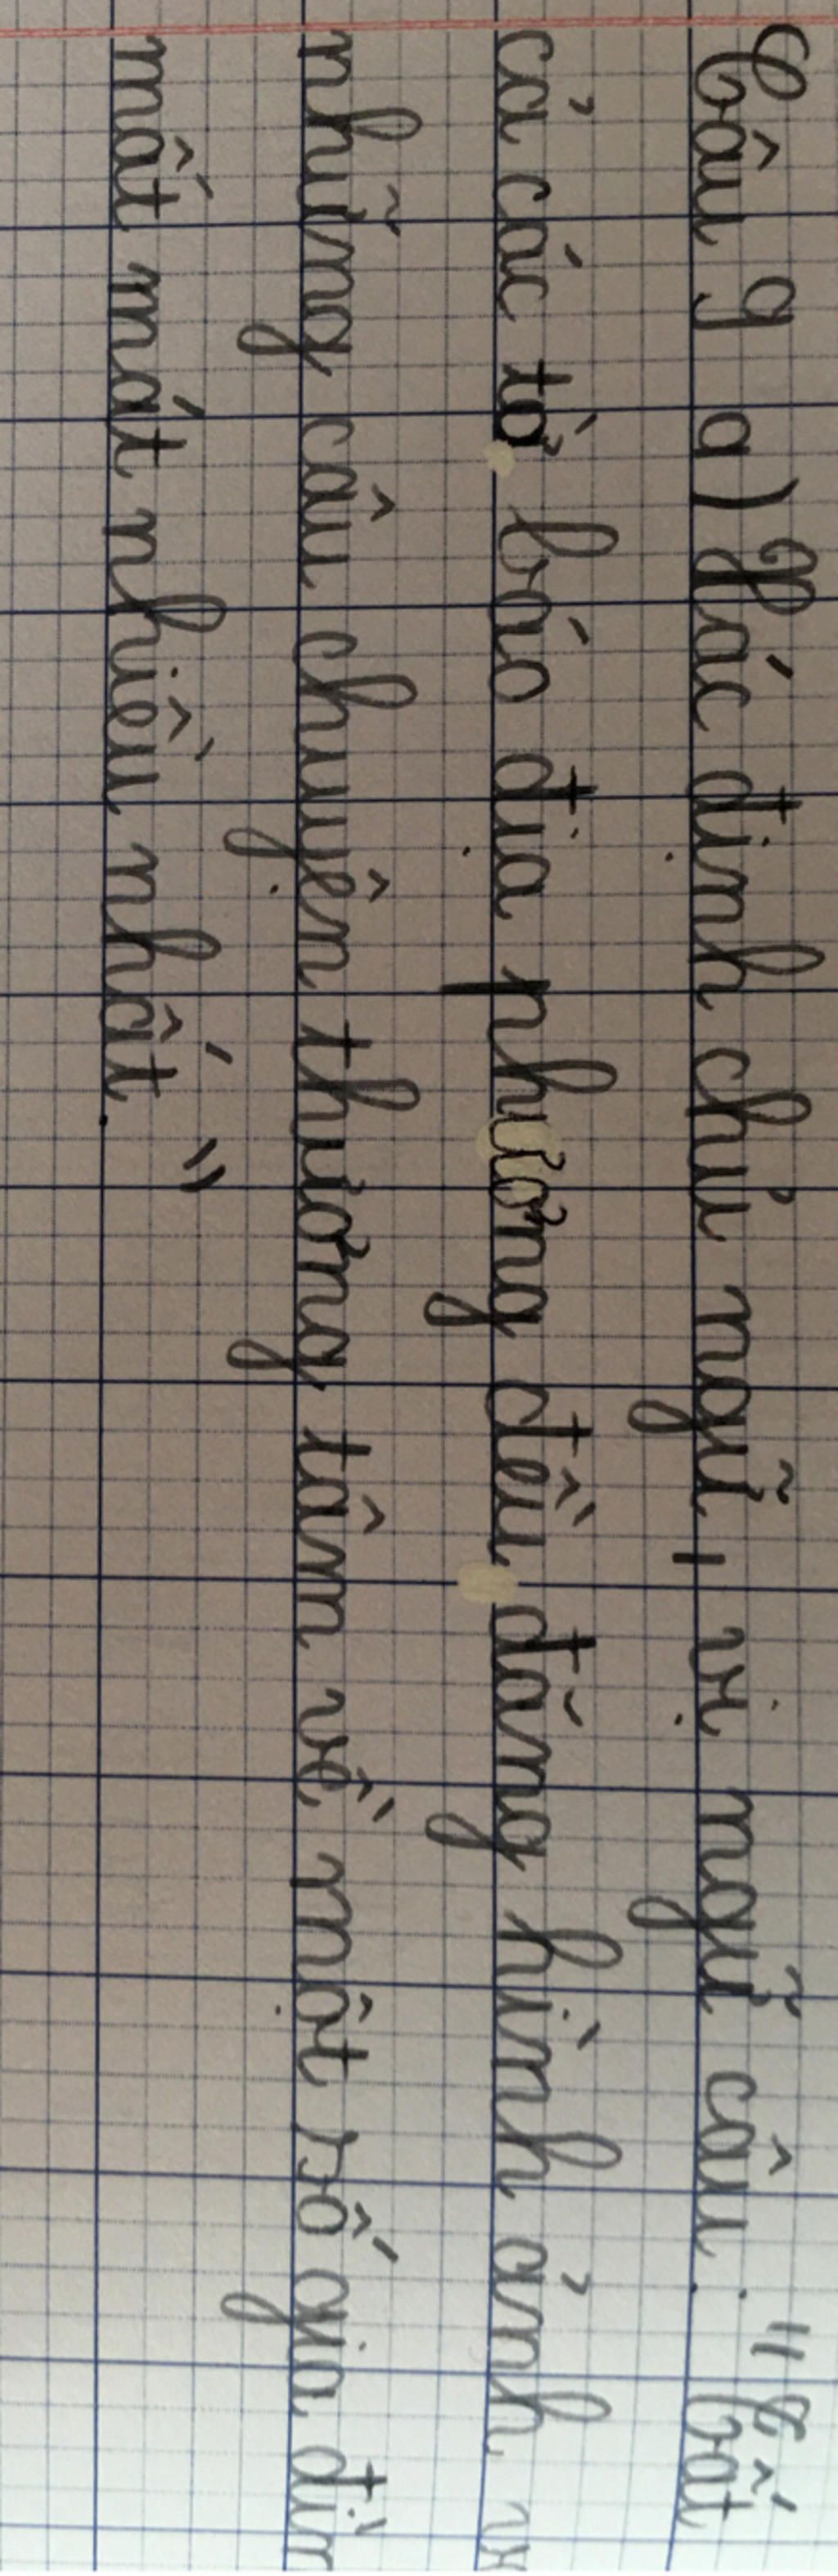 Câu 9 a) Xác định chủ ngữ, vị ngữ câu: "Bất
cả các tờ báo địa phương đều đăng hình ảnh
những câu chuyện thương tâm về một số gia đìn
mất mát nhiều nhất."